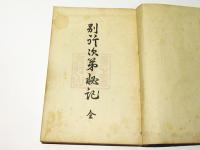 別行次第秘記
全